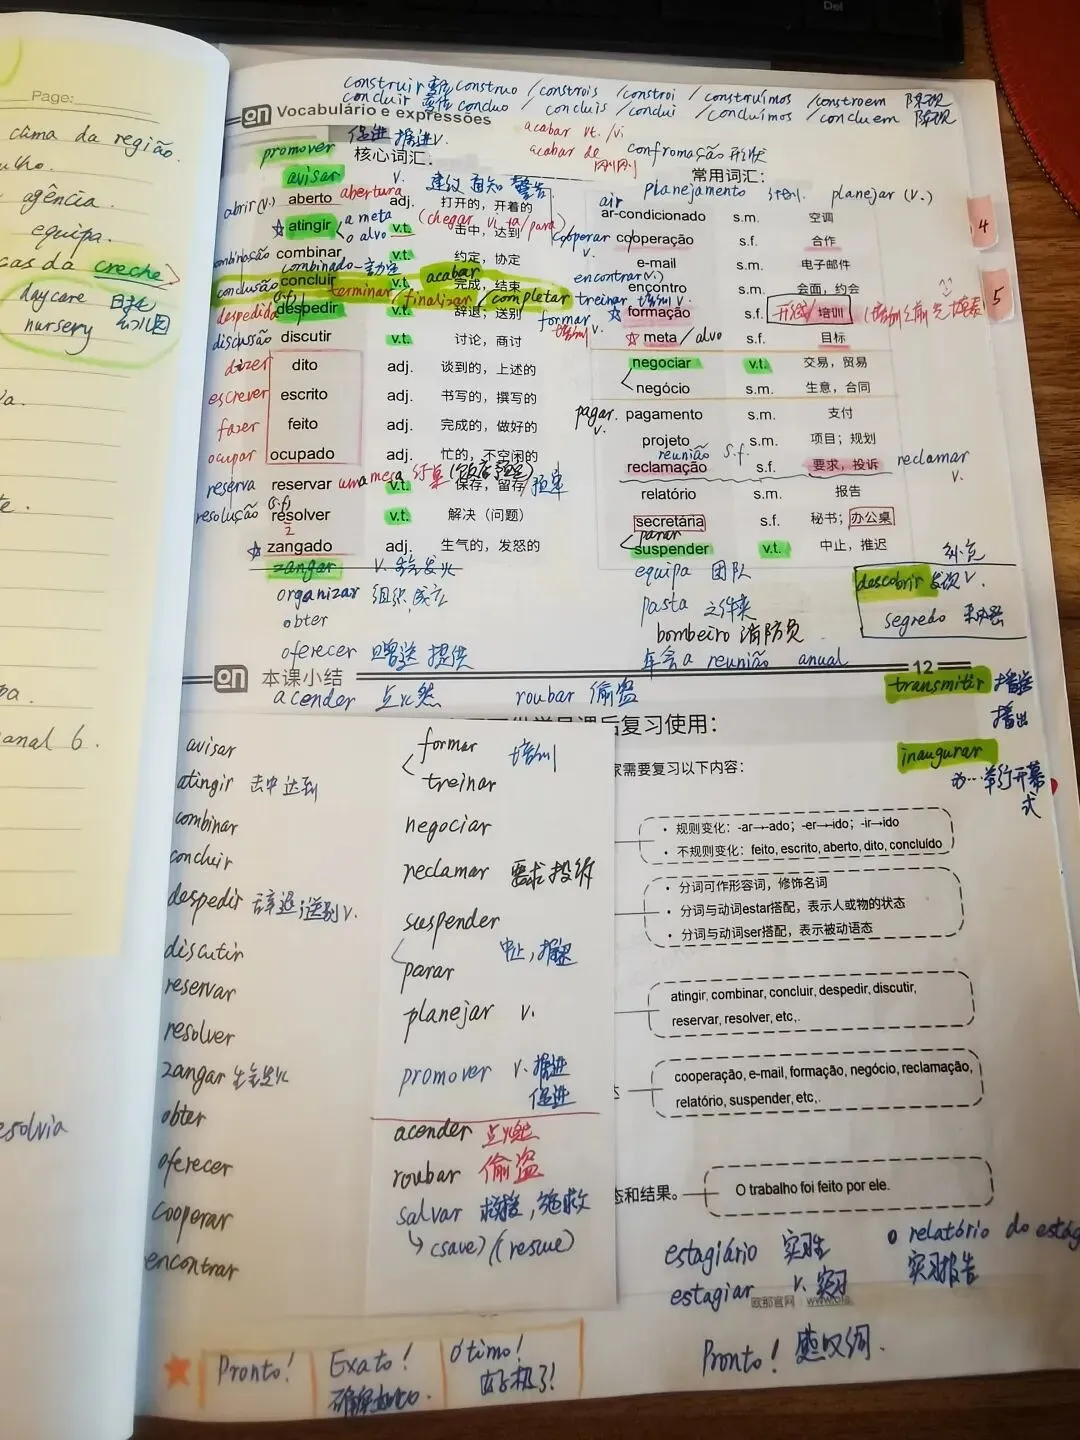 Del
Page:
clima da região.
agência.
equipa.
creche
daycare
nursery
anal 6.
construir 变位 construo / constrois / constroi / construímos / constroem
concluir 变位 concluo / concluis / conclui / concluímos / concluem
on Vocabulário e expressões
promover 促进 推进 v.
acabar vt. /vi
acabar de 刚刚
confromação 形状
核心词汇：
常用词汇：
avisar v. 建议 通知 警告
planejamento 计划 planejar (v.)
air
abrir (v.) aberto abertura adj. 打开的，开着的
ar-condicionado s.m. 空调
☆ atingir a meta v.t. 击中，达到
o alvo
(chegar vi ta/para)
cooperar v. cooperação s.f. 合作
combinação combinar v.t. 约定，协定
e-mail s.m. 电子邮件
combinado
acabar
conclusão concluir 完成，结束
encontrar (v.) encontro s.m. 会面，约会
(s.f) terminar / finalizar / completar
treinar 培训 v.
despedida despedir v.t. 辞退；送别
formar v. 培训 ☆ formação s.f. 培训
discussão discutir v.t. 讨论，商讨
☆ meta / alvo s.f. 目标
dizer dito adj. 谈到的，上述的
negociar v.t. 交易，贸易
escrever escrito adj. 书写的，撰写的
negócio s.m. 生意，合同
fazer feito adj. 完成的，做好的
pagar v. pagamento s.m. 支付
ocupar ocupado adj. 忙的，不空闲的
projeto s.m. 项目；规划
reunião s.f.
reserva reservar uma mesa v.t. 保存，留存 预定
reclamação s.f. 要求，投诉 reclamar v.
resolução (s.f) resolver v.t. 解决（问题）
relatório s.m. 报告
☆ zangado adj. 生气的，发怒的
secretária s.f. 秘书；办公桌
parar
suspender v.t. 中止，推迟
zangar v. 生气发火
organizar 组织，成立
equipa 团队
补充
descobrir 发现 v.
obter
pasta 文件夹
segredo 秘密
bombeiro 消防员
oferecer 赠送 提供
年会 a reunião anual
on 本课小结
12
transmitir 播送
播出
acender 点燃
roubar 偷盗
课后复习使用：
inaugurar
为…举行开幕式
家需要复习以下内容：
avisar
formar 培训
treinar
atingir 击中 达到
combinar
negociar
concluir
reclamar 要求 投诉
despedir 辞退；送别 v.
suspender
中止，推迟
discutir
parar
reservar
planejar v.
resolver
zangar 生气发火
promover v. 推进
促进
obter
acender 点燃
oferecer
roubar 偷盗
cooperar
salvar 救援，拯救
encontrar
↳ (save) / (rescue)
• 规则变化：-ar→-ado；-er→-ido；-ir→-ido
• 不规则变化：feito, escrito, aberto, dito, concluído
• 分词可作形容词，修饰名词
• 分词与动词estar搭配，表示人或物的状态
• 分词与动词ser搭配，表示被动语态
atingir, combinar, concluir, despedir, discutir,
reservar, resolver, etc,.
cooperação, e-mail, formação, negócio, reclamação,
relatório, suspender, etc,.
态和结果。 O trabalho foi feito por ele.
esolvia
estagiário 实习生
o relatório do estág
estagiar v. 实习
实习报告
欧那官网
Pronto!
Exato!
ótimo!
好极了！
Pronto! 感叹词.
4
5